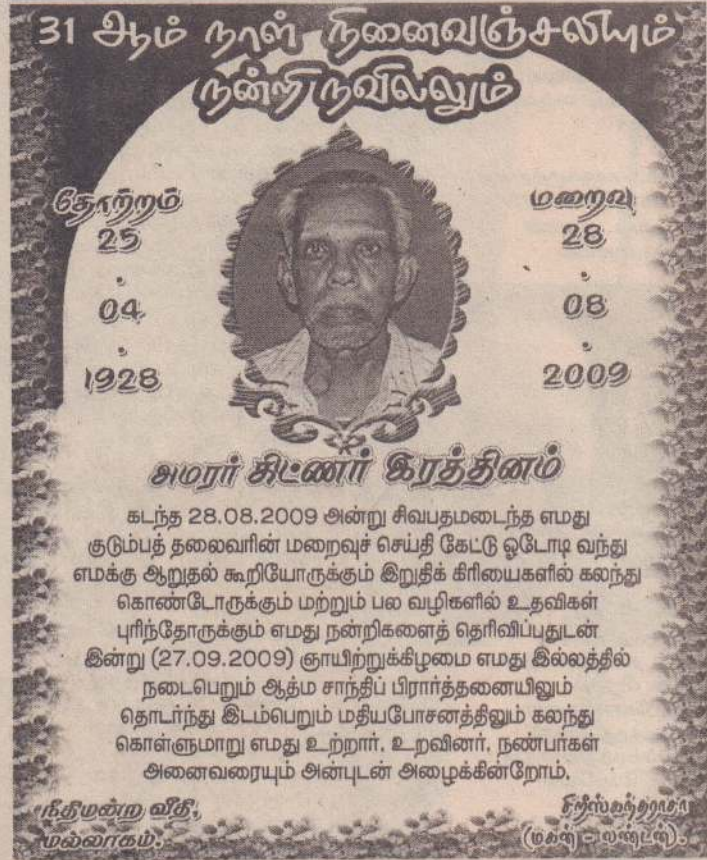 31 ஆம் நாள் நினைவஞ்சலியும்
நன்றி நவிலலும்
தோற்றம்
25
.
04
.
1928
மறைவு
28
.
08
.
2009
அமரர் கிட்ணர் இரத்தினம்
கடந்த 28.08.2009 அன்று சிவபதமடைந்த எமது
குடும்பத் தலைவரின் மறைவுச் செய்தி கேட்டு ஓடோடி வந்து
எமக்கு ஆறுதல் கூறியோருக்கும் இறுதிக் கிரியைகளில் கலந்து
கொண்டோருக்கும் மற்றும் பல வழிகளில் உதவிகள்
புரிந்தோருக்கும் எமது நன்றிகளைத் தெரிவிப்பதுடன்
இன்று (27.09.2009) ஞாயிற்றுக்கிழமை எமது இல்லத்தில்
நடைபெறும் ஆத்ம சாந்திப் பிரார்த்தனையிலும்
தொடர்ந்து இடம்பெறும் மதியபோசனத்திலும் கலந்து
கொள்ளுமாறு எமது உற்றார், உறவினர், நண்பர்கள்
அனைவரையும் அன்புடன் அழைக்கின்றோம்.
நீதிமன்ற வீதி,
மல்லாகம்.
சிறீஸ்கந்தராசா
(மகன் - லண்டன்).